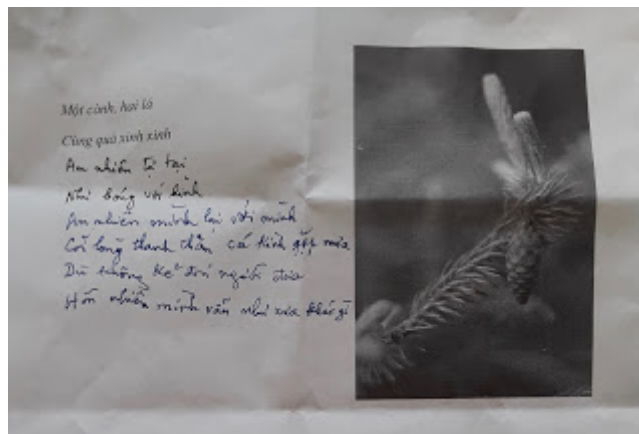 Một cành, hai lá
Cùng quả xinh xinh
An nhiên tự tại
Như bóng với hình
An nhiên mình lại với mình
Cõi lòng thanh thản cá kình gặp mưa
Dù không kẻ đón người đưa
Hồn nhiên mình vẫn như xưa khác gì